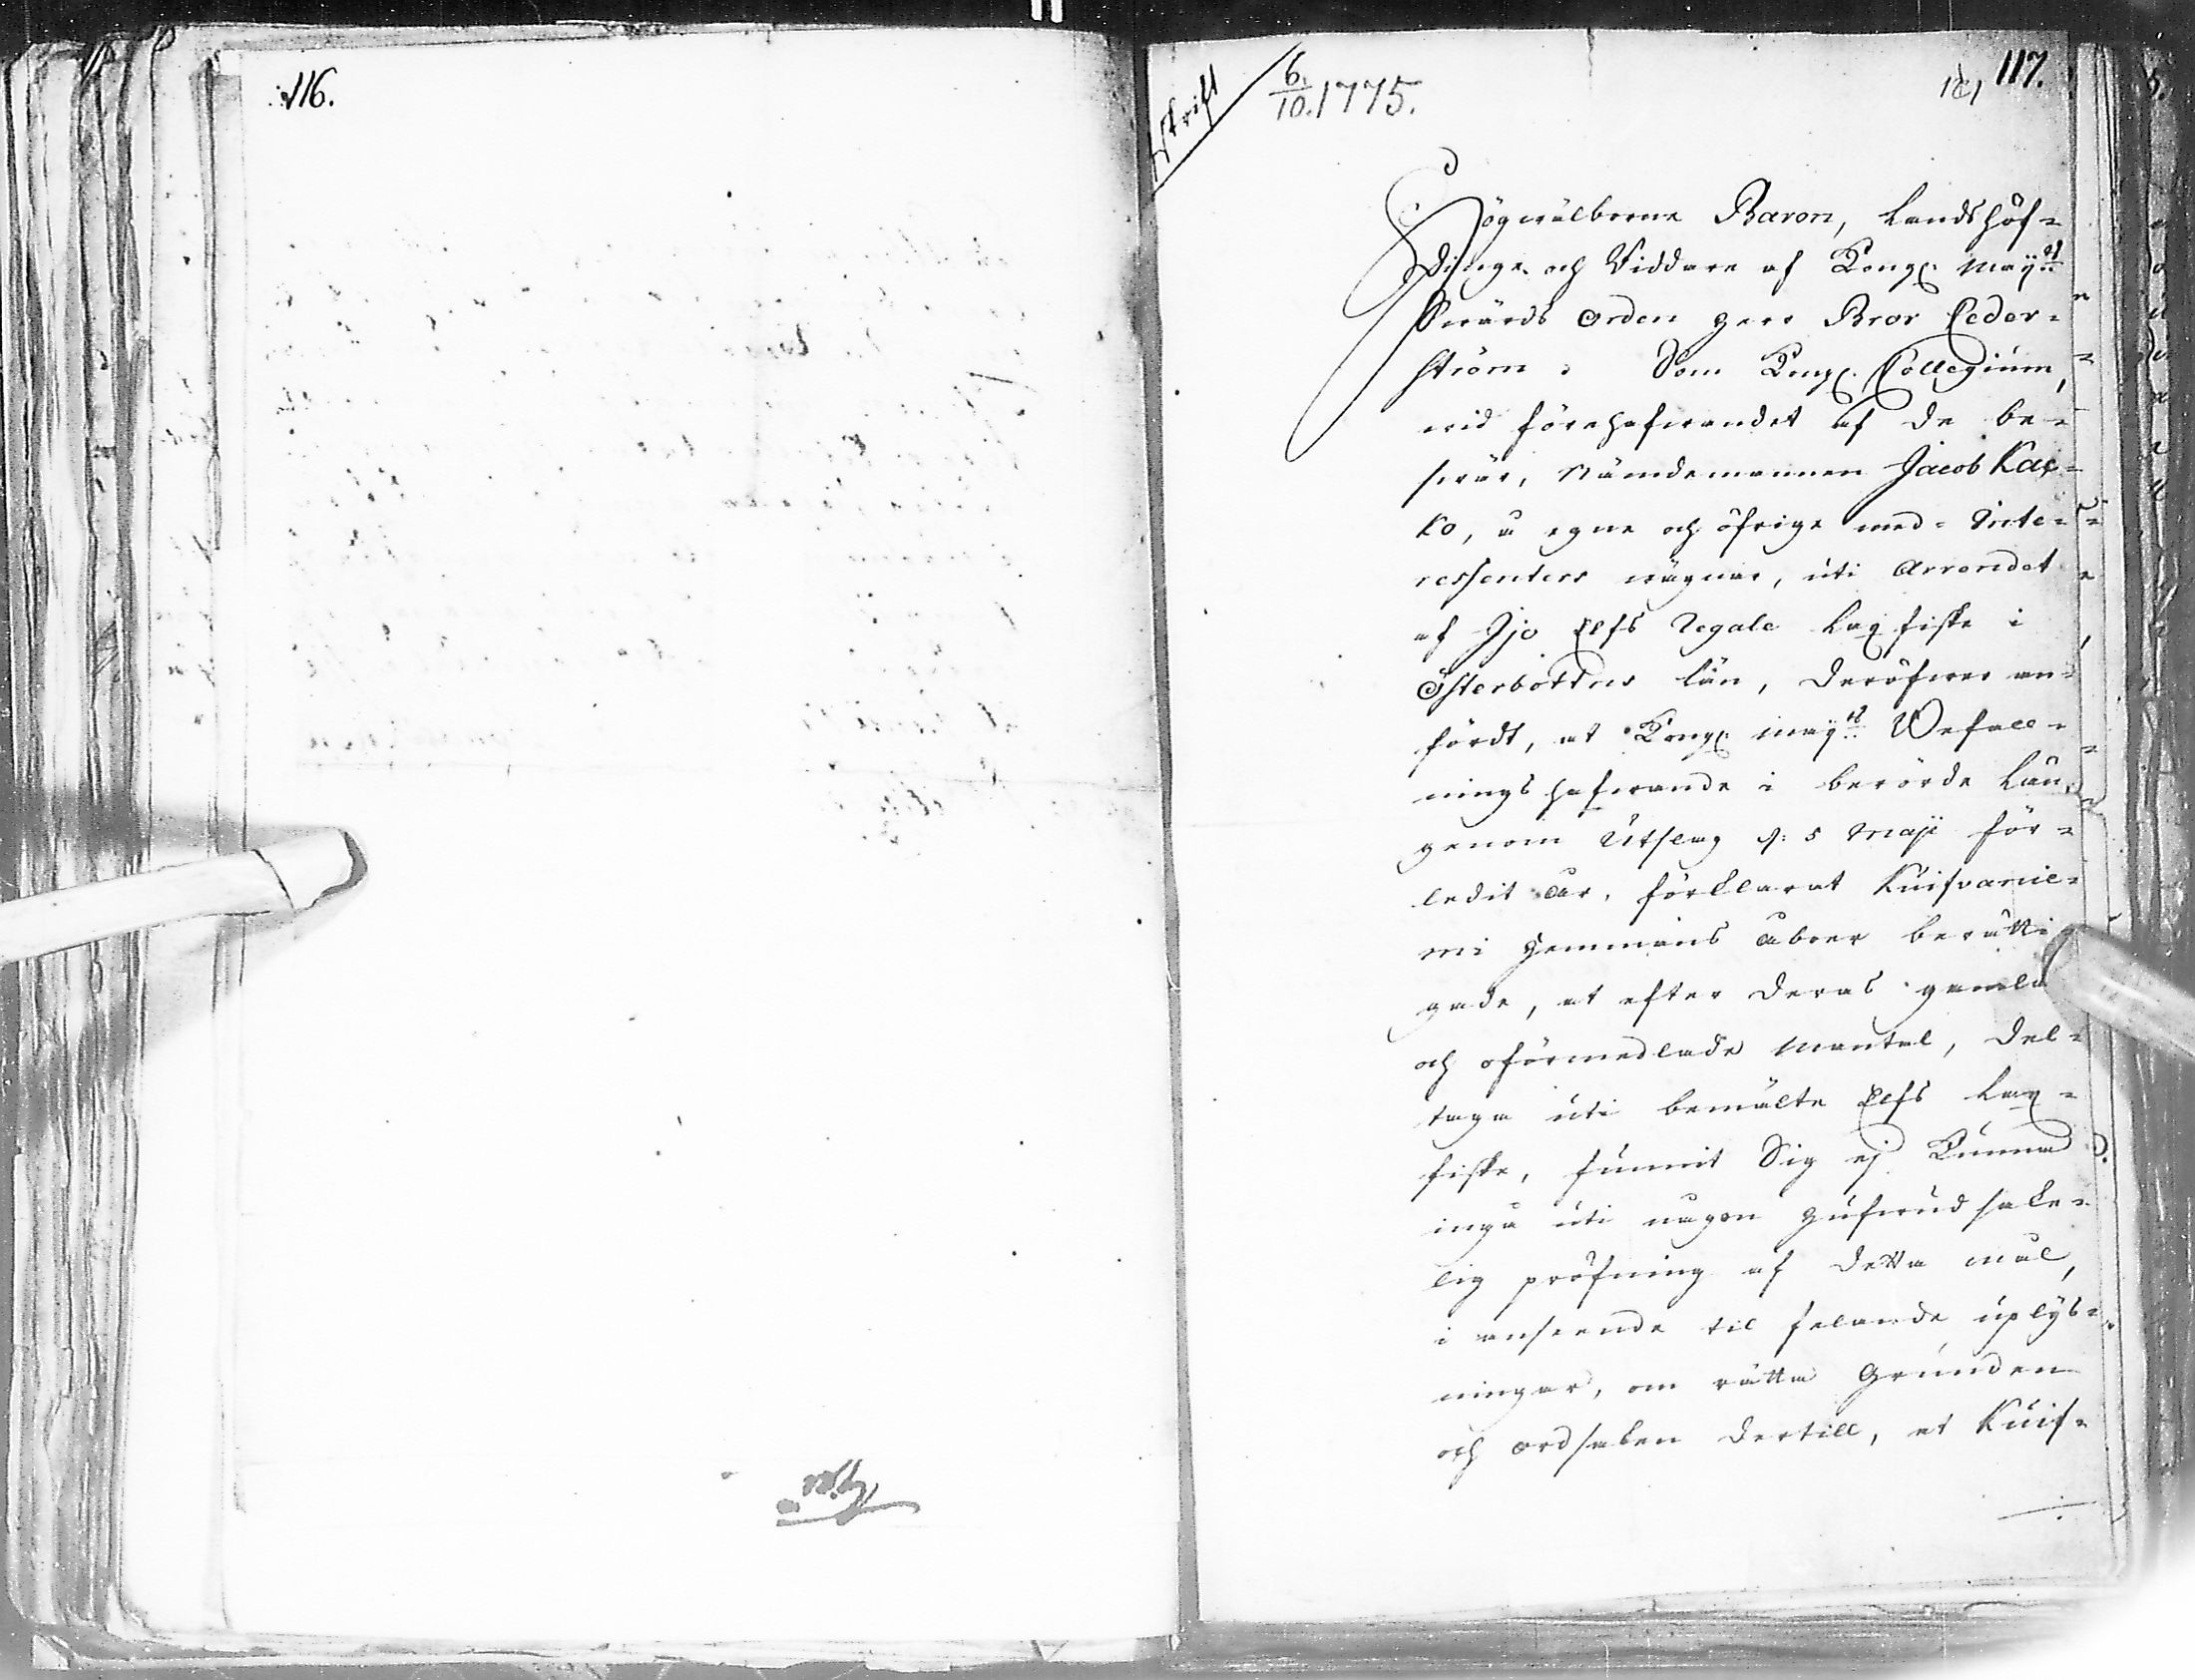 116.
Afskrift
6/10. 1775.
117.
Högwälborne Baron, Landshöf-
dinge och Riddare af Kongl. May:ts
Swärds Orden Herr Bror Ceder-
ström. Som Kongl. Collegium,
wid förehafwandet af de be-
swär, Nämdemannen Jacob Kac-
ko, å egne och öfrige med-Inte-
ressenters wägnar, uti Arrendet
af Ijo Elfs Regale Laxfiske i
Österbottns Län, deröfwer an-
fördt, at Kongl. May:ts Befall-
ningshafwande i berörde Län,
genom Utslag d: 5 Maji för-
ledit år, förklarat Kuifvanie-
mi Hemmans Åboer berätti-
gade, at efter deras gamla
och oförmedlade Mantal, del-
taga uti bemälte Elfs Lax-
fiske, funnit Sig ej kunna
ingå uti någon hufwudsake-
lig pröfning af detta mål,
i anseende til felande uplys-
ningar, om rätta Grunden
och ordsaken dertill, at Kuif-